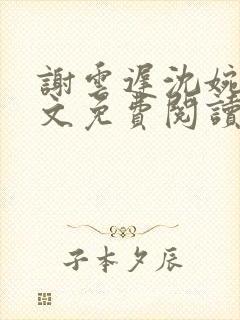 謝雲遲沈婉
文免費閱讀
子本夕辰